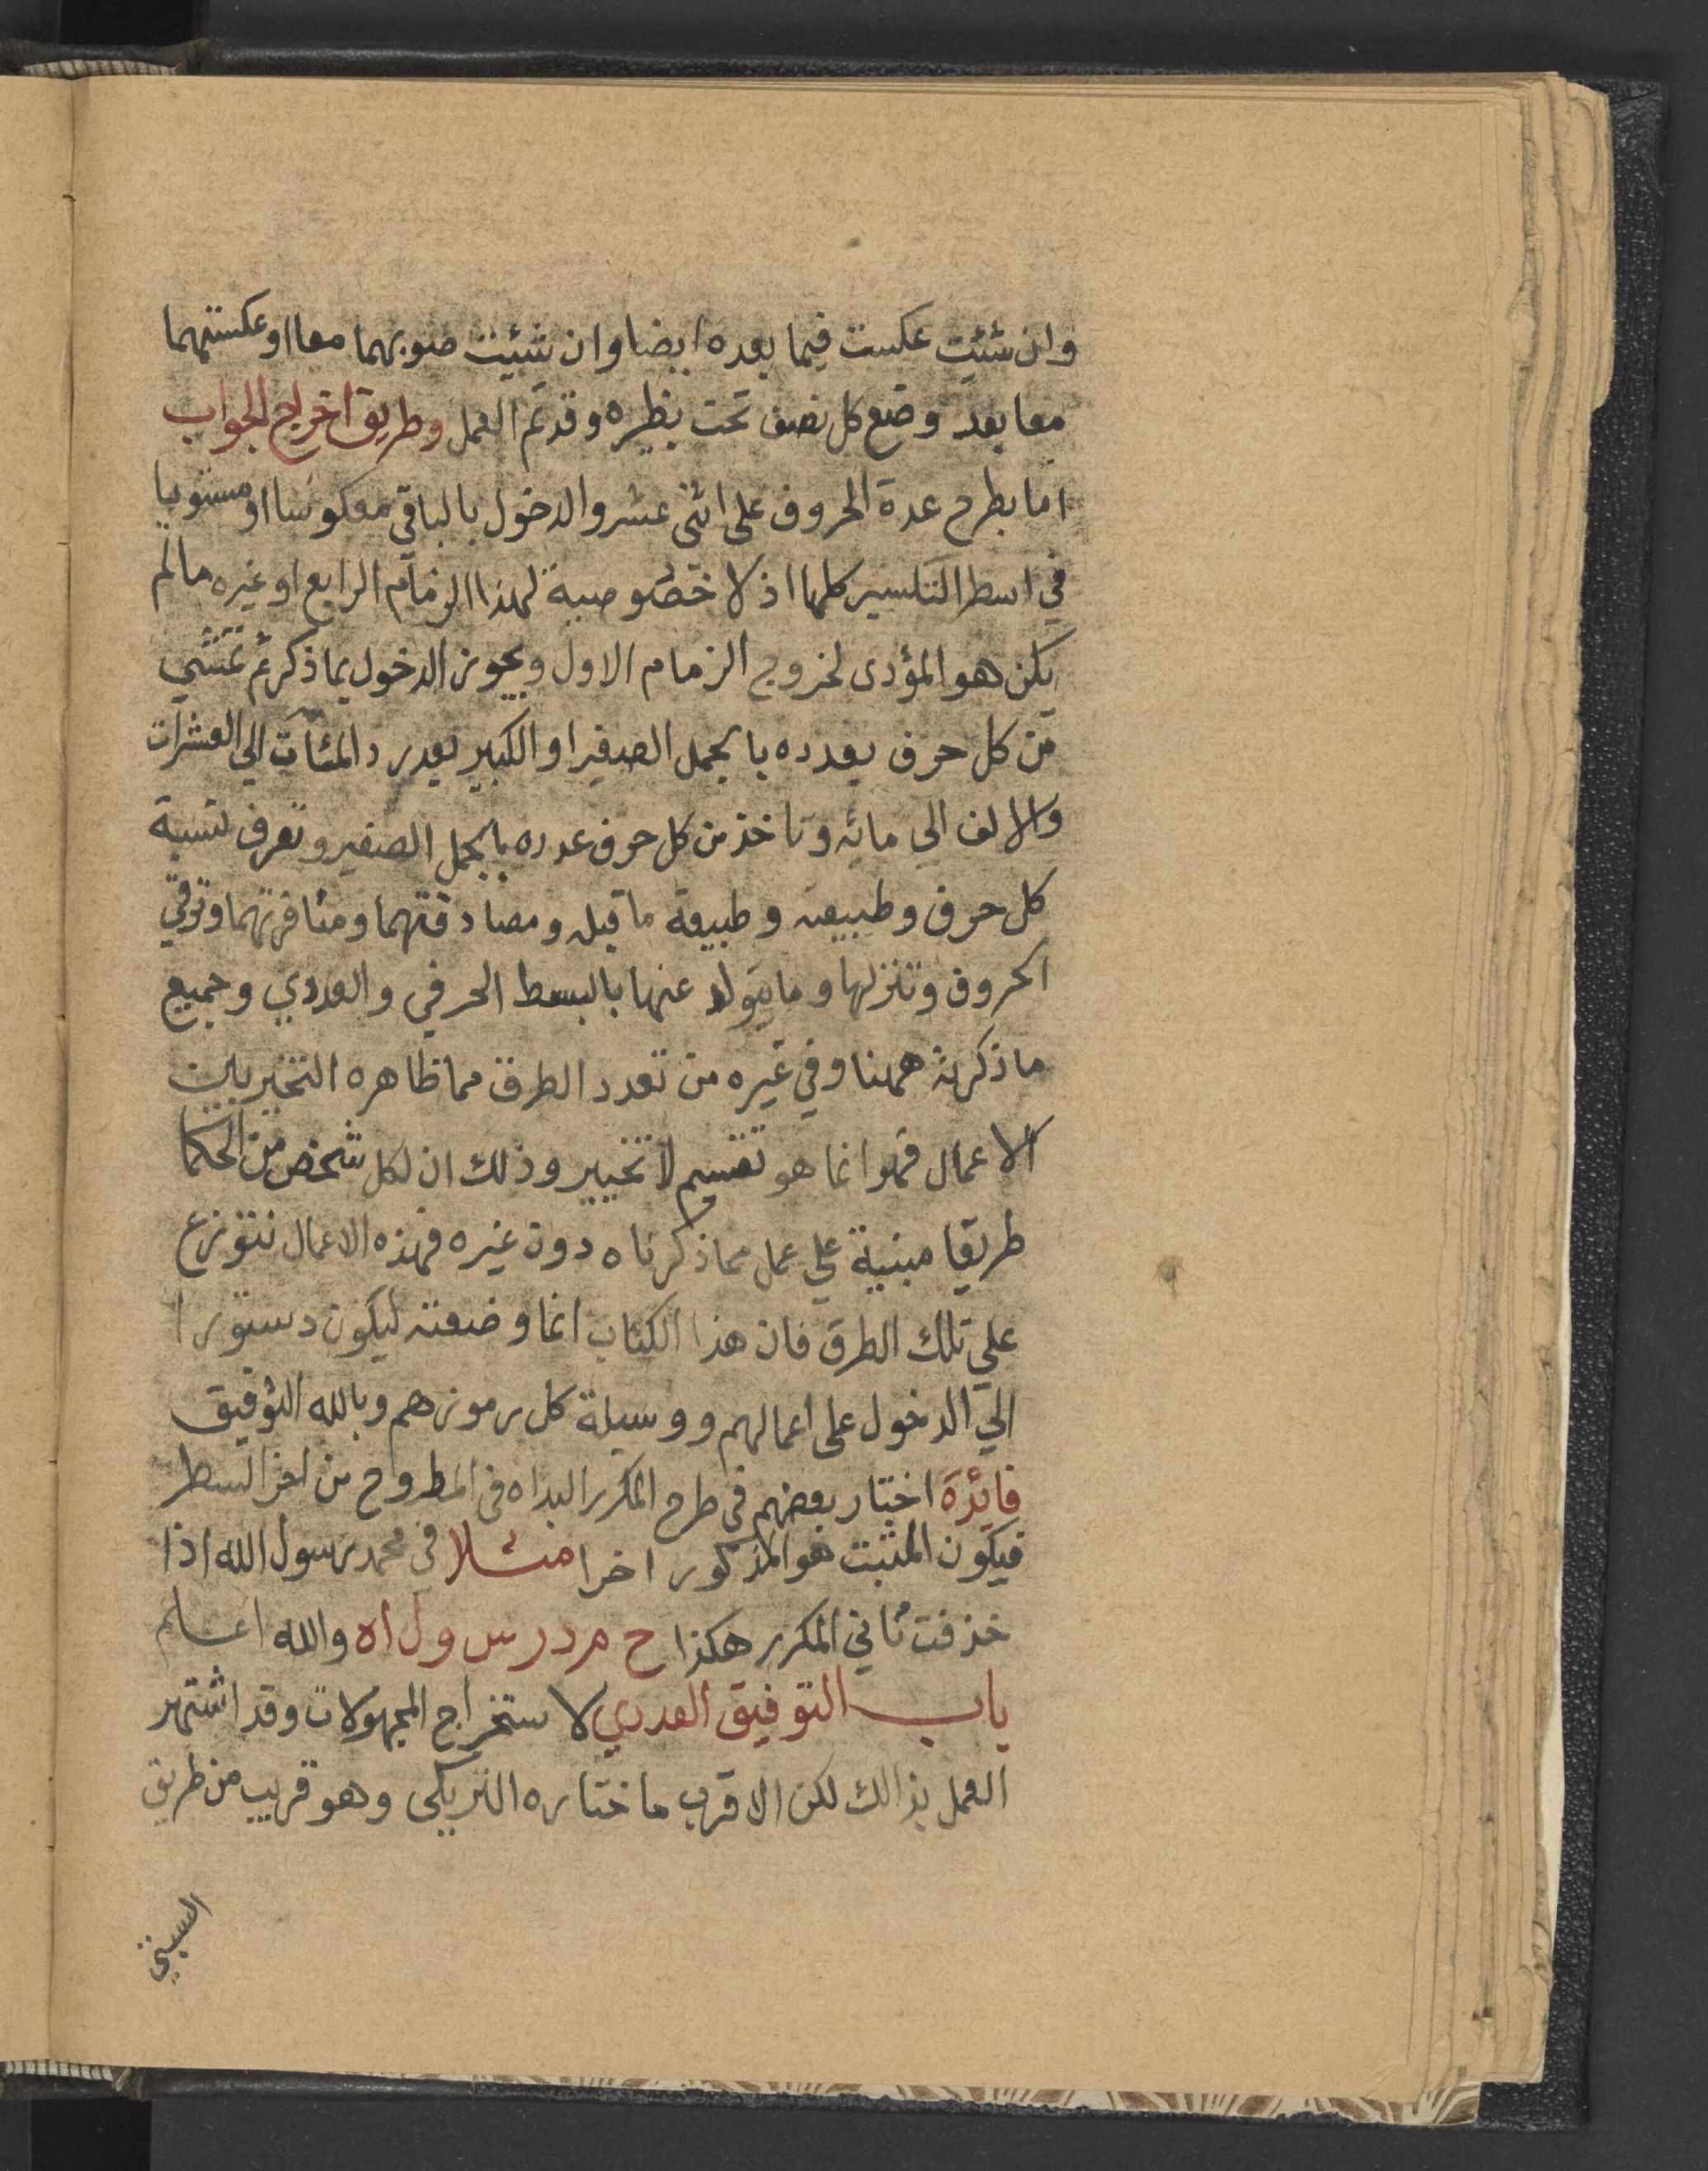 وان شئيت عكست فيما بعده ايضا وان شئيت ضوبهما معا او عكستهما
معا بعد وضع كل نصف تحت نظيره وقد تم العمل وطريق اخراج الجواب
اما بطرح عدة الحروف على اثنى عشر والدخول بالباقي معكوسا او مستويا
في اسطر التكسير كلها اذ لا خصوصية لهذا الزمام الرابع او غيره مالم
يكن هو المؤدى لخروج الزمام الاول ويجوز الدخول بما ذكر ثم تمشي
من كل حرف بعدده بالجمل الصغير او الكبير بعد رد المئات الي العشرات
والالف الي مائه وتاخذ من كل حرف عدده بالجمل الصغير وتعرف نسبة
كل حرف وطبيعته وطبيعة ما قبله ومصادقتهما ومنافرتهما وترقي
الحروف وتنزلها وما يتولد عنها بالبسط الحرفي والعددي وجميع
ما ذكرته ههنا وفي غيره من تعدد الطرق مما ظاهره التخير بين
الاعمال فهو انما هو تقسيم لا تخيير وذلك ان لكل شخص من الحكما
طريقا مبنية علي عمل مما ذكرناه دون غيره فهذه الاعمال تتوزع
علي تلك الطرق فان هذا الكتاب انما وضعته ليكون دستورا
الي الدخول على اعمالهم ووسيلة كل رموزهم وبالله التوفيق
فايدة اختار بعضهم في طرح المكرر البداه في المطروح من اخر السطر
فيكون المثبت هو المذكور اخرا مثلا في محمد رسول الله اذا
خذفت ثاني المكرر هكذا ح م د ر س و ل ا ه والله اعلم
باب التوفيق العددي لاستخراج المجهولات وقد اشتهر
العمل بذالك لكن الاقرب ما ختاره التريكى وهو قريب من طريق
السبتي